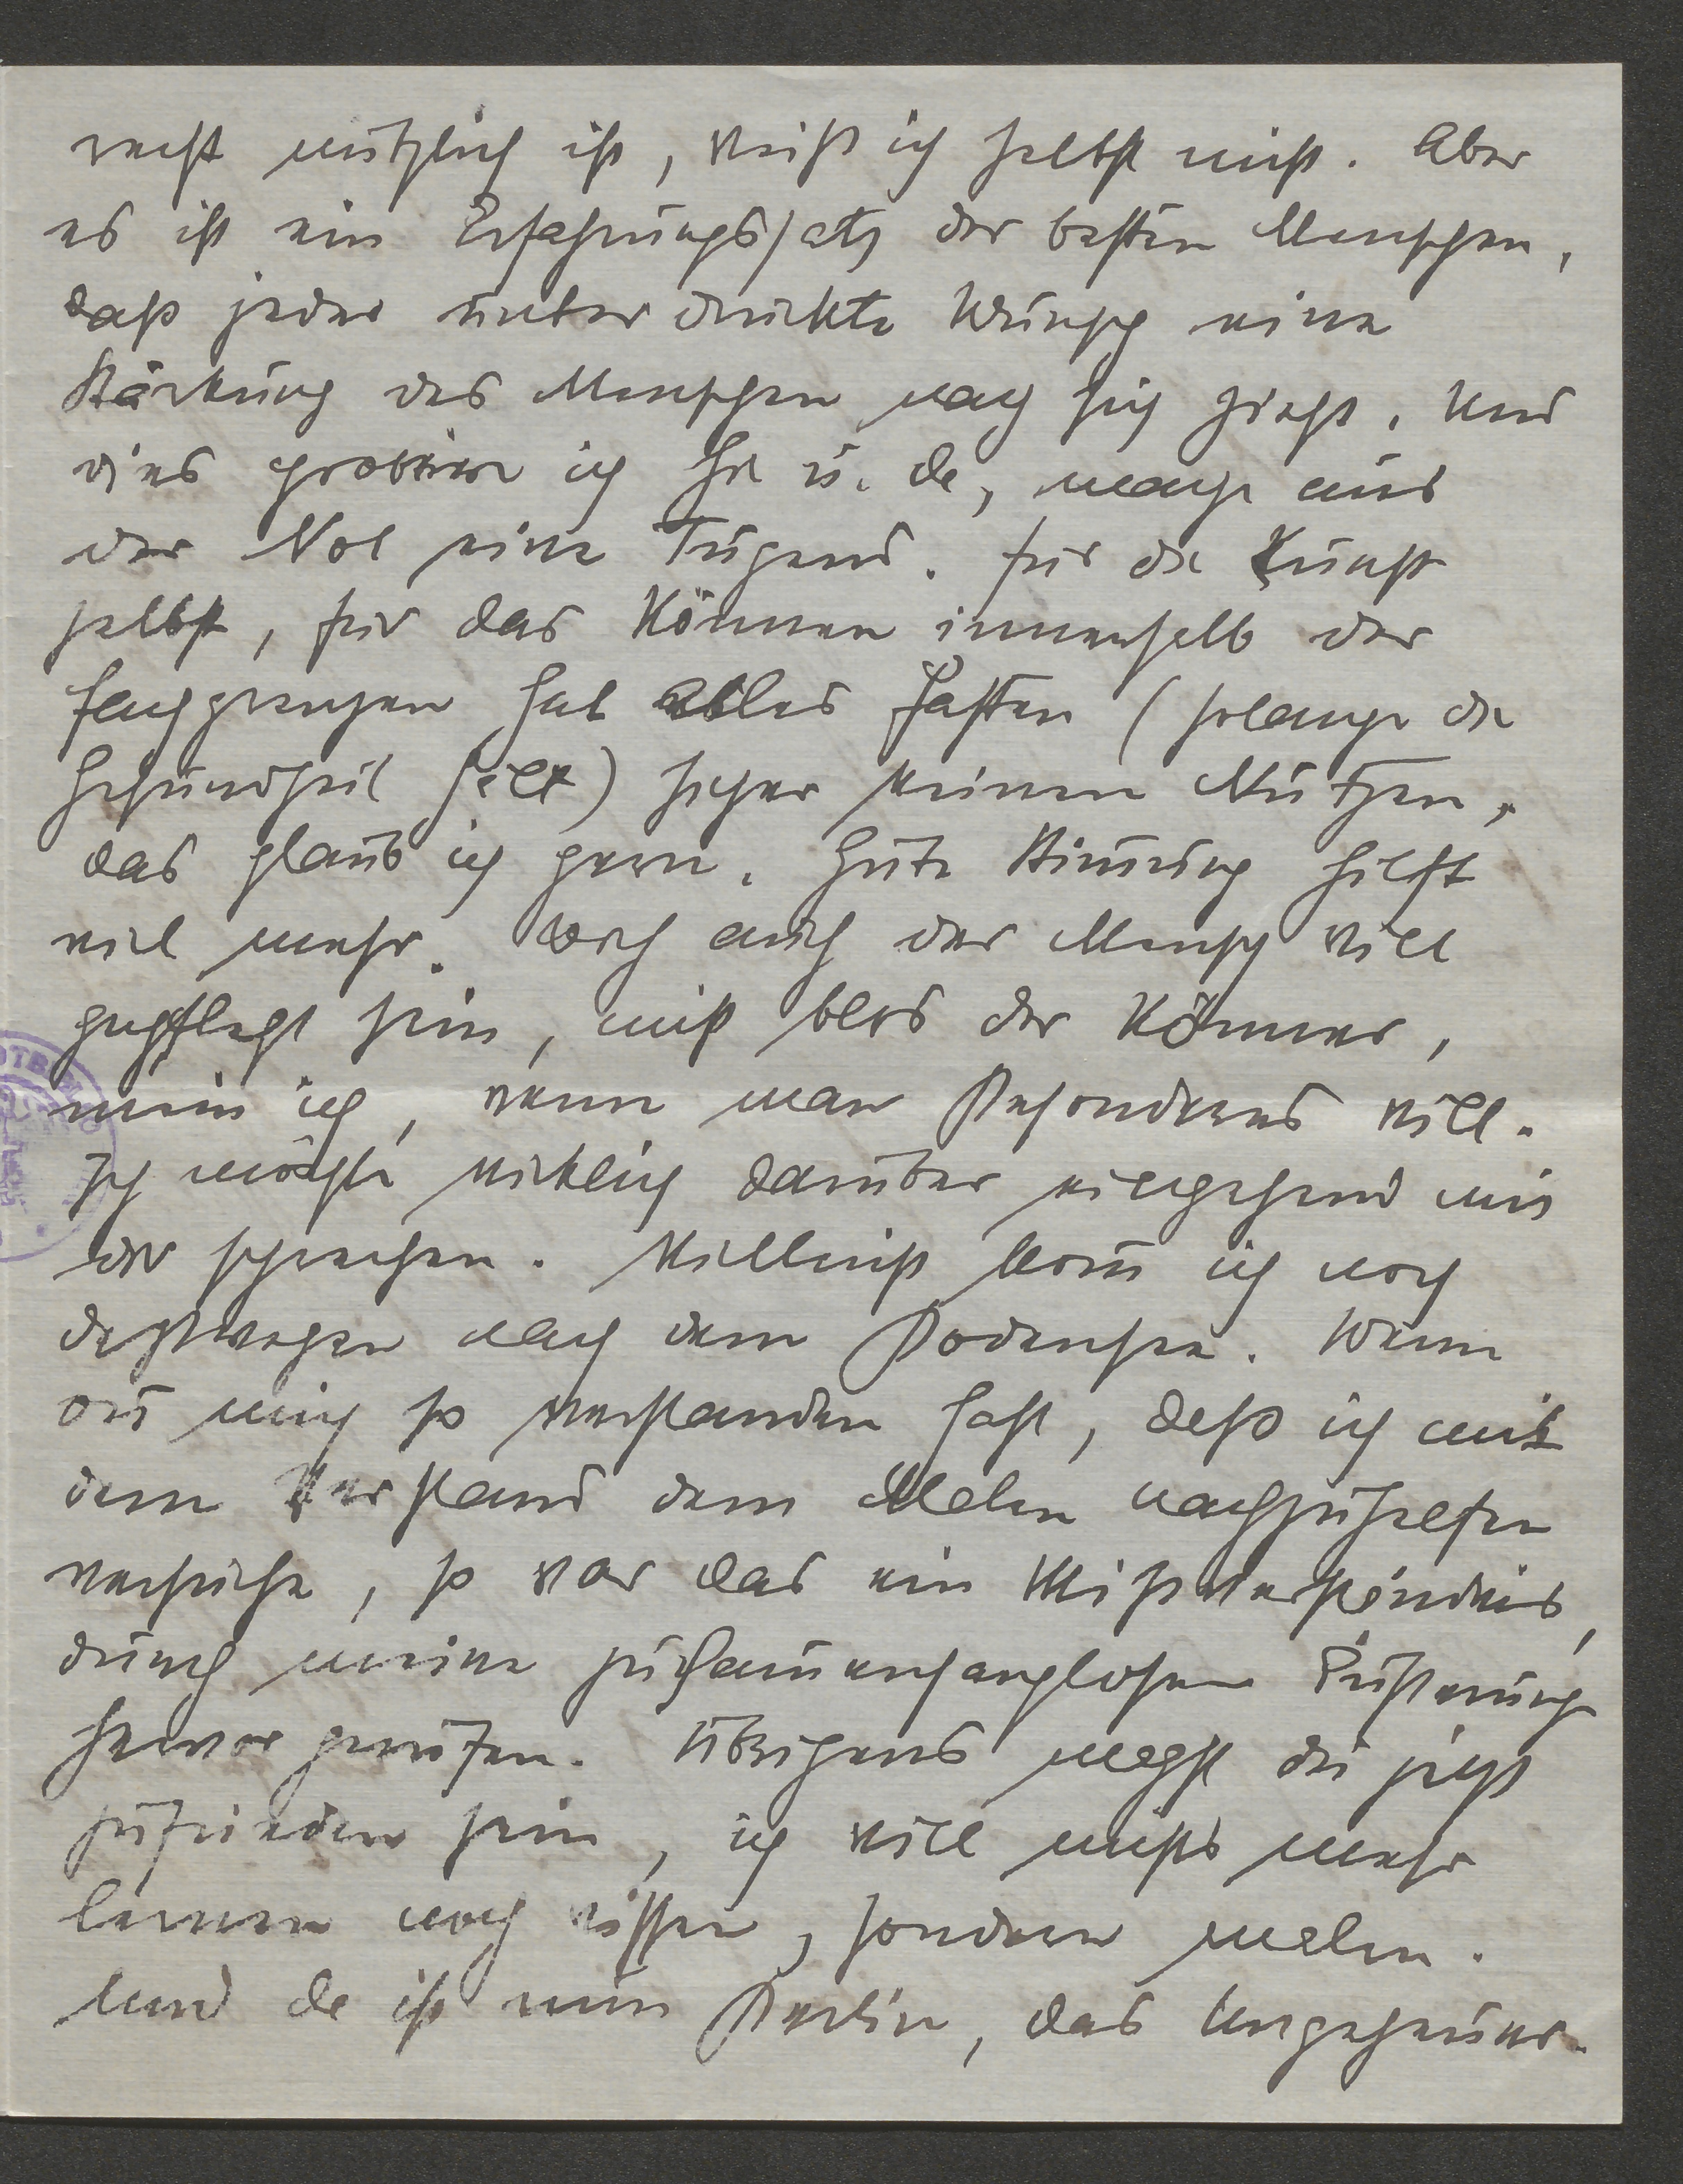 recht nützlich ist, weiß ich selbst nicht. Aber
es ist ein Erfahrungssatz der besten Menschen,
daß jeder unterdrückte Wunsch eine
Stärkung des Menschen nach sich zieht. Und
dies probiere ich hie u. da, mache aus
der Not eine Tugend. Für die Kunst
selbst, für das Können innerhalb der
Fachgrenzen hat alles Fasten (solange die
Gesundheit hält) sicher keinen Nutzen,
das glaub ich gern. Gute Stimung hilft
viel mehr. Doch auch der Mensch will
gepflegt sein, nicht blos der Könner,
mein ich, wenn man Besonderes will.
Ich möchte wirklich darüber eingehend mit
dir sprechen. Vielleicht kom ich noch
deßwegen nach dem Bodensee. Wenn
du mich so verstanden hast, daß ich mit
dem Verstand dem Malen nachzuhelfen
versuche, so war das ein Mißverständnis,
durch meine zusamenhanglosen Äußerung
hervorgerufen. Übrigens magst du jetzt
zufrieden sein, ich will nichts mehr
lernen noch wissen, sondern malen.
Und da ist nun Berlin, das Ungeheuer.